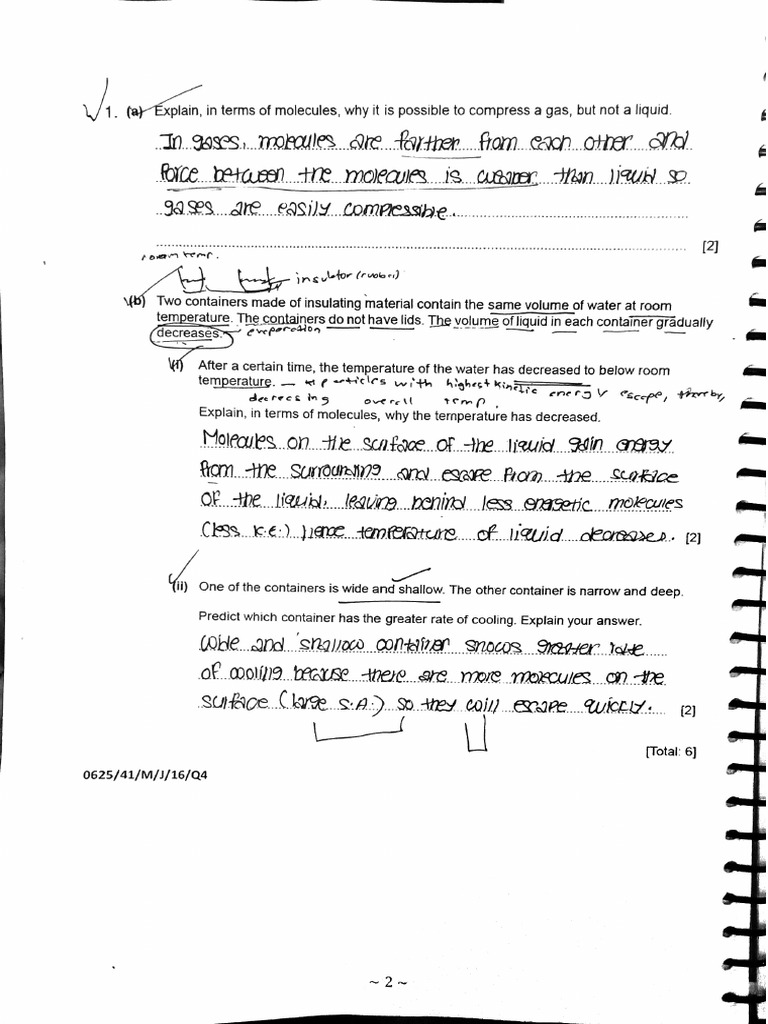 1. (a) Explain, in terms of molecules, why it is possible to compress a gas, but not a liquid.
In gases, molecules are farther from each other and
force between the molecules is weaker than liquid so
gases are easily compressible.
[2]
room temp.
insulator (rubber)
(b) Two containers made of insulating material contain the same volume of water at room
temperature. The containers do not have lids. The volume of liquid in each container gradually
decreases. evaporation
(i) After a certain time, the temperature of the water has decreased to below room
temperature. — particles with highest kinetic energy escape, thereby,
decreasing overall temp.
Explain, in terms of molecules, why the temperature has decreased.
Molecules on the surface of the liquid gain energy
from the surrounding and escape from the surface
of the liquid, leaving behind less energetic molecules
(less K.E.) Hence temperature of liquid decreases. [2]
(ii) One of the containers is wide and shallow. The other container is narrow and deep.
Predict which container has the greater rate of cooling. Explain your answer.
Wide and shallow container shows greater rate
of cooling because there are more molecules on the
surface (large S.A.) so they will escape quickly. [2]
[Total: 6]
0625/41/M/J/16/Q4
~ 2 ~